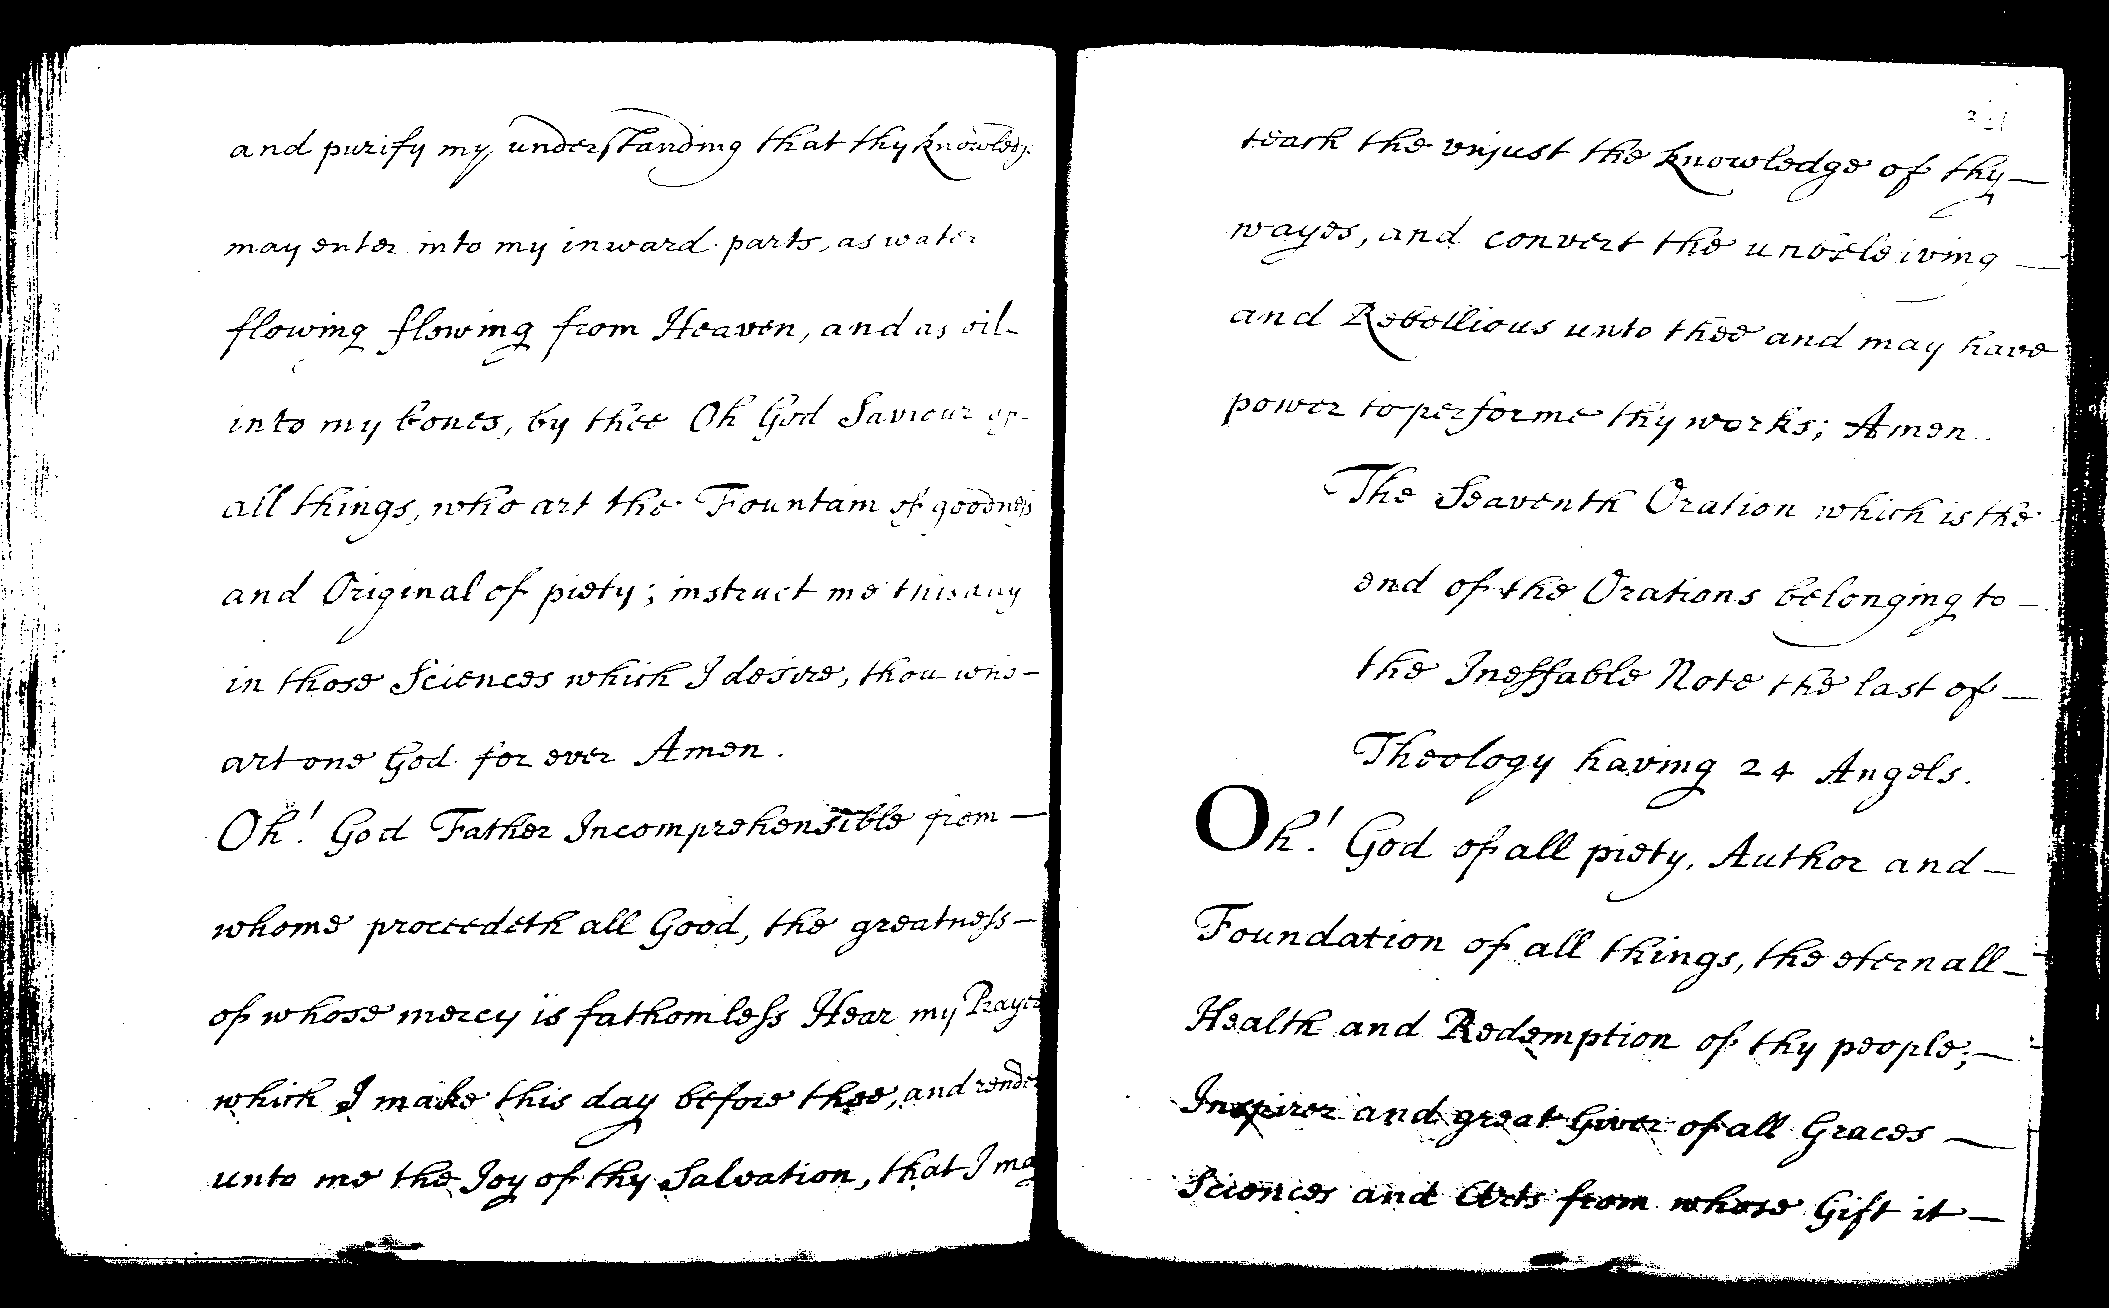 and purify my understanding that thy knowledg
may enter into my inward parts, as water
flowing flowing from Heaven, and as oil-
into my bones, by thee Oh God Saviour of-
all things, who art the Fountain of goodness
and Original of piety; instruct me this day
in those Sciences which I desire, thou who-
art one God for ever Amen.
Oh! God Father Incomprehensible from —
whome proceedeth all Good, the greatness —
of whose mercy is fathomless Hear my Prayer
which I make this day before thee, and render
unto me the Joy of thy Salvation, that I may
teach the vnjust the knowledge of thy —
wayes, and convert the unbeleiving —
and Rebellious unto thee and may have
power to performe thy works; Amen.
The Seaventh Oration which is the
end of the Orations belonging to —
the Ineffable Note the last of —
Theology having 24 Angels.
Oh! God of all piety, Author and —
Foundation of all things, the eternall —
Health and Redemption of thy people; —
Inspirer and great Giver of all Graces —
Sciences and Arts from whose Gift it —